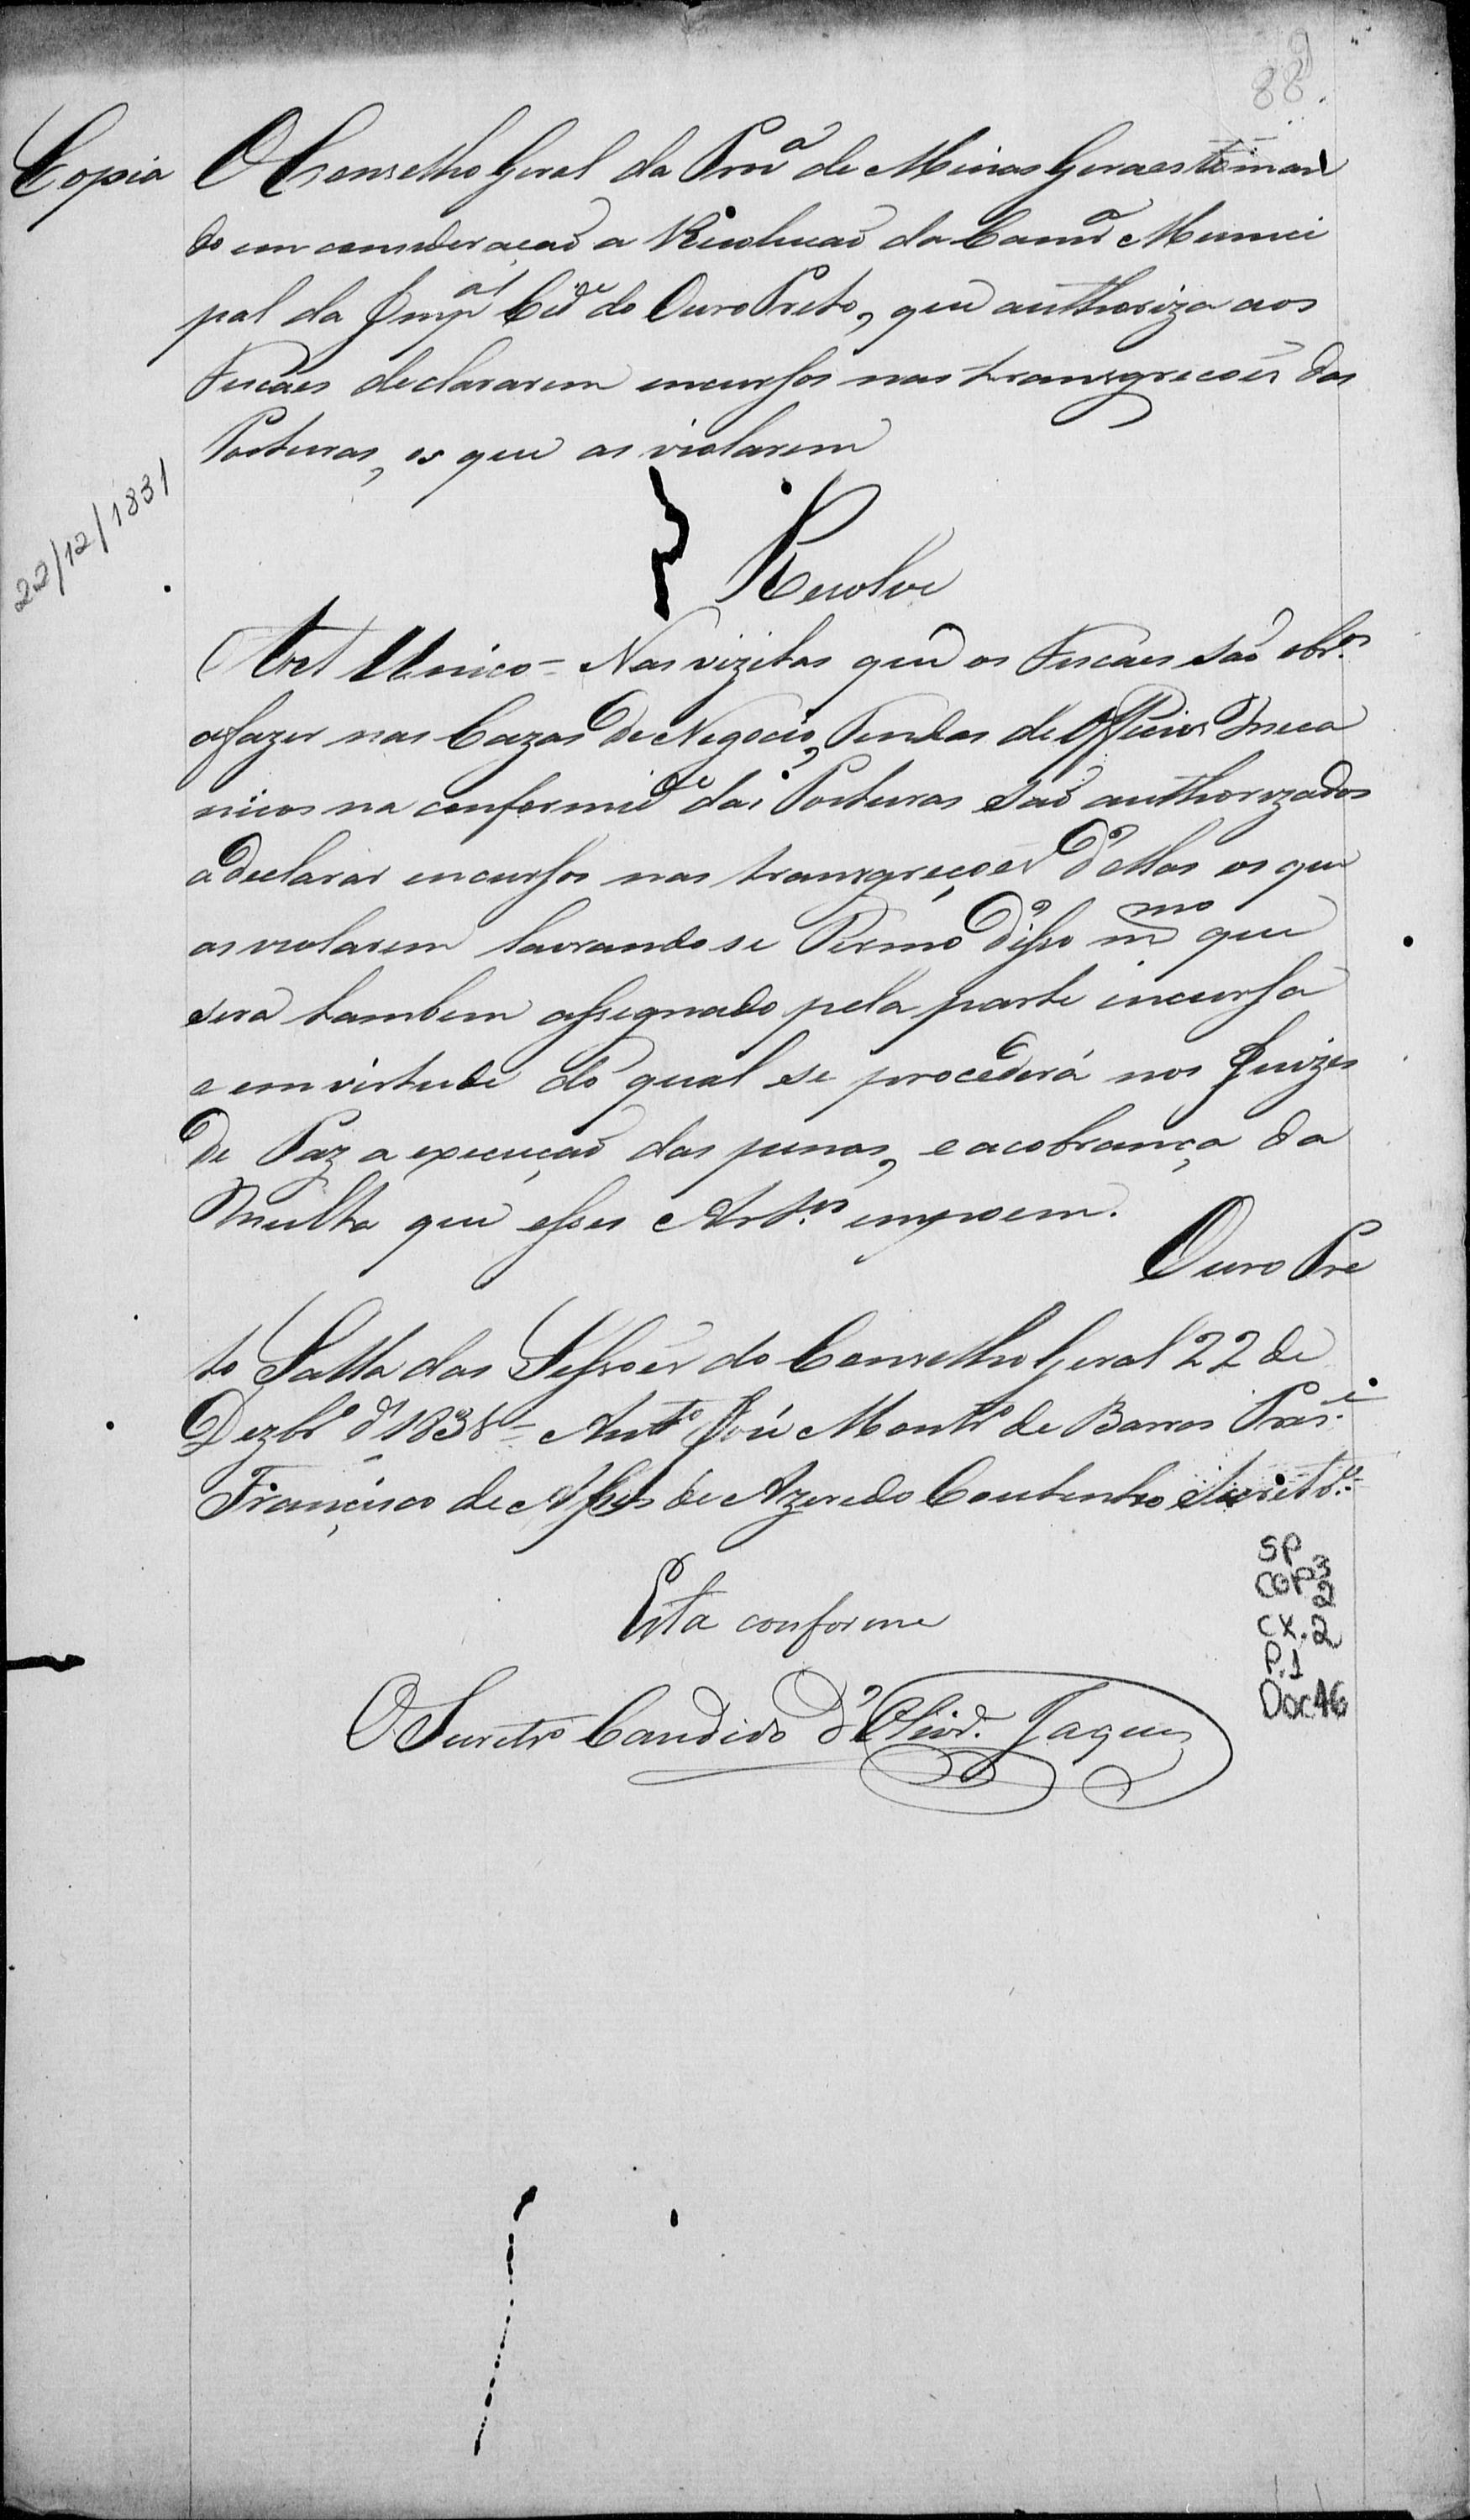 88
Copia
O Conselho Geral da Prov.ª de Minas Geraes toman
do em consideração a Resolucaõ da Camr.ª Munici
pal da Imp.al Cid.e do Ouro Preto, que authoriza aos
Fiscaes declararem incursos nas transgrecoẽs das
Posturas, os que as violarem
22/12/1831
Resolve
Art Unico = Nas vizitas que os Fiscaes saõ obr.os
a fazer nas Cazas de Negocio, Tendas de Officios Meca
nicos na conformid.e das Posturas saõ authorizados
a declarar incursos nas transgreçoes d'ellas os que
as violarem lavrando se Termo d'isso m.mo que
será tambem assegnado pela parte incursa
e em virtude do qual se procederá nos Juizes
de Paz a execuçaõ das penas, e a cobrança da
Multa que esses Art.os impoem.
Ouro Pre
to Salla das Sessoẽs do Conselho Geral 22 de
Dezbr.º d' 183 Ant.º José Montr.º de Barros Pres.e
Francisco de Assis de Azeredo Coutinho Secretr.º
Está conforme
O Secretr.º Candido d'Olivr.ª Jaques
SP
COP 3
2
CX. 2
P. 1
Doc 46